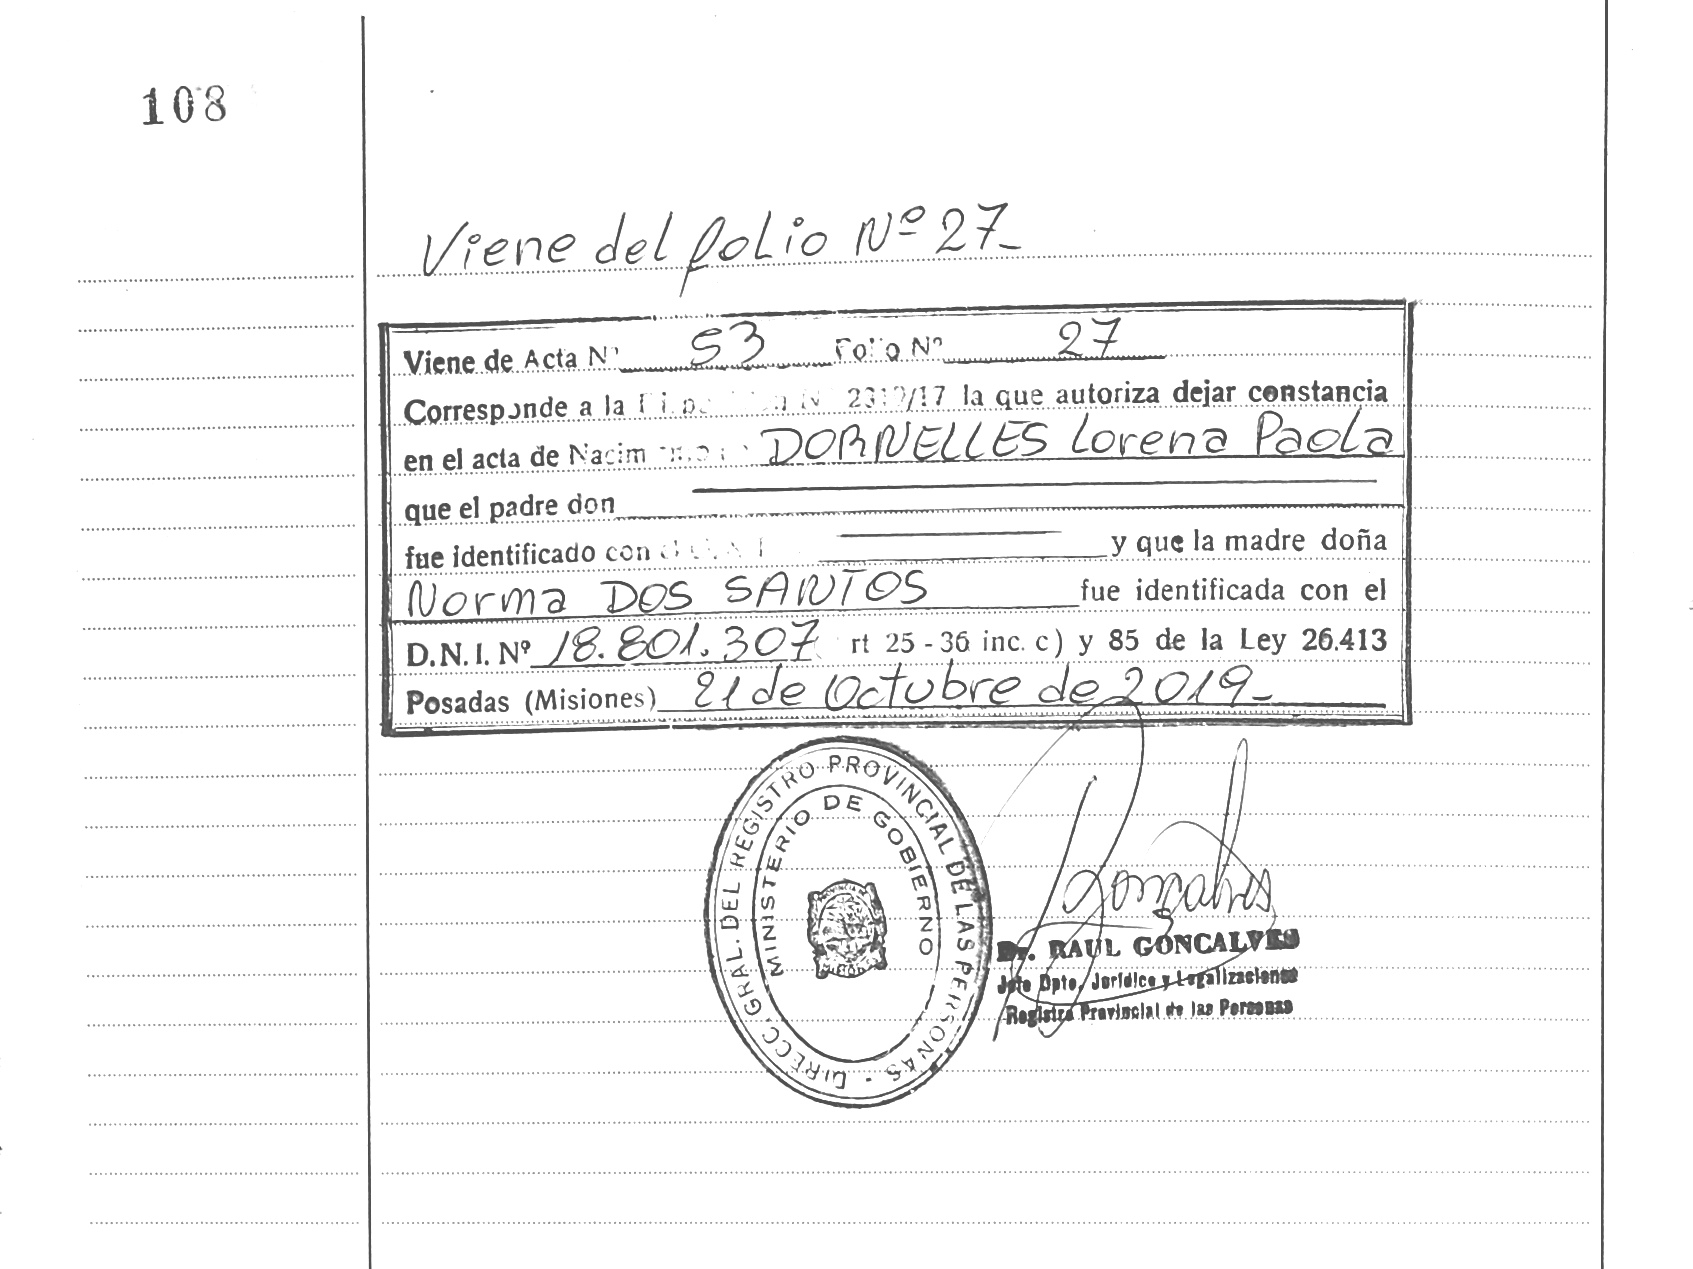 108
Viene del folio Nº 27_
Viene de Acta Nº 53 Folio Nº 27
Corresponde a la la que autoriza dejar constancia
en el acta de Nacim DORNELLES Lorena Paola
que el padre don
fue identificado con y que la madre doña
Norma DOS SANTOS fue identificada con el
D.N.I. Nº 18.801.307 rt 25 - 36 inc. c) y 85 de la Ley 26.413
Posadas (Misiones) 21 de Octubre de 2019_
DIRECC. GRAL. DEL REGISTRO PROVINCIAL DE LAS PERSONAS -
MINISTERIO DE GOBIERNO
Gonçalves
Dr. RAUL GONCALVES
Jefe Dpto. Jurídico y Legalizaciones
Registro Provincial de las Personas